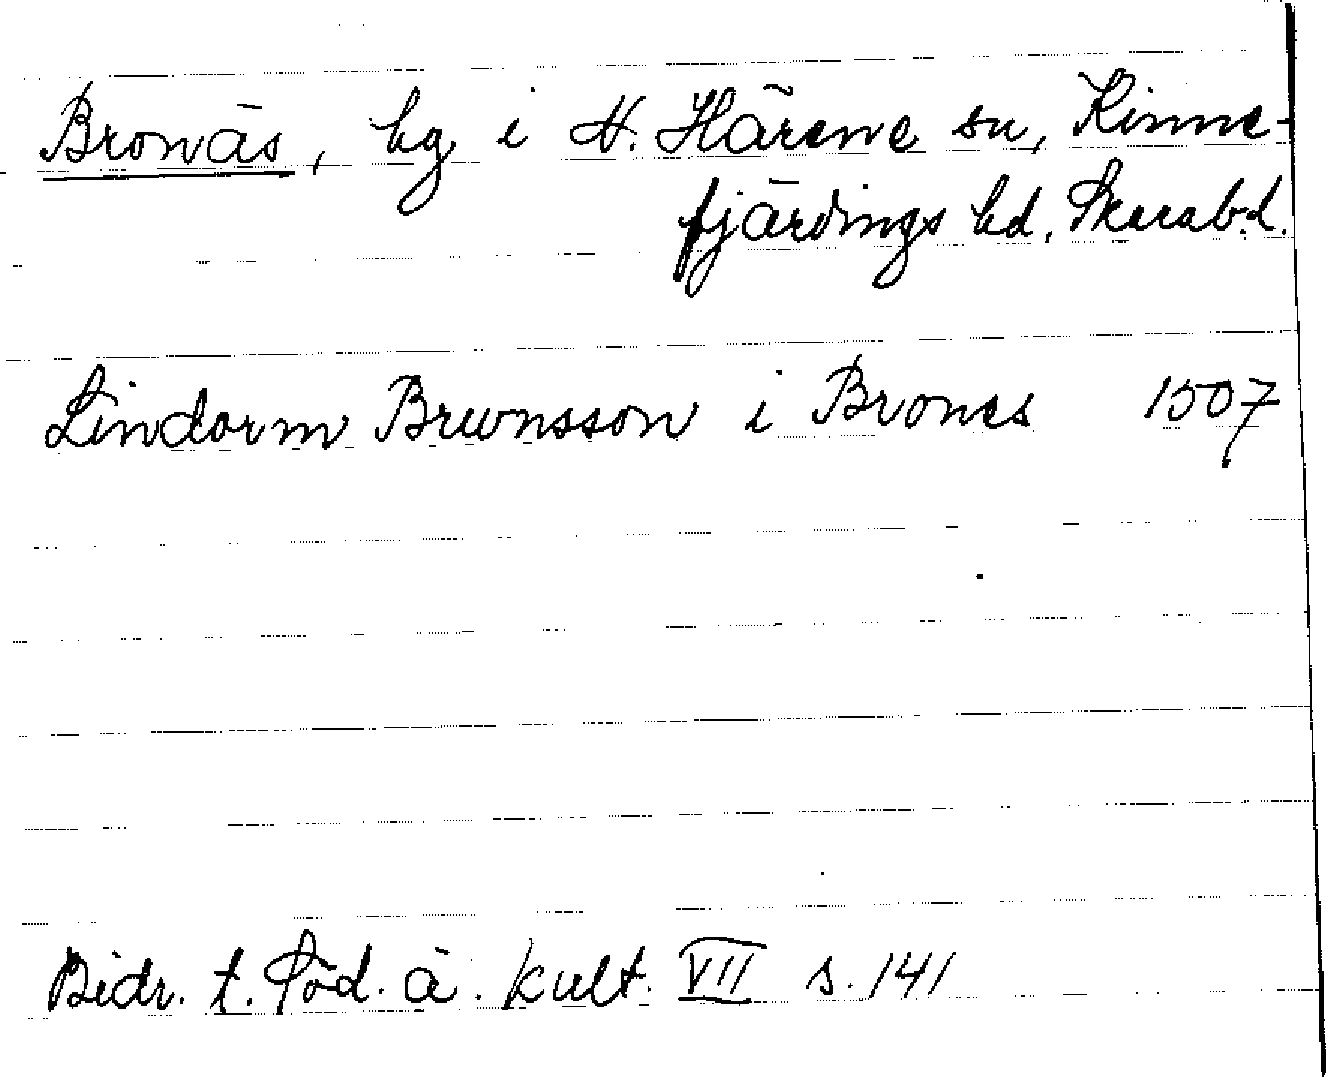 Bronäs, hg i N. Härene sn, Kinne-
fjärdings hd, Skarab.l.
Lindorm Brunsson i Brones 1507
Bidr. t. Söd. ä. kult. VII s. 141